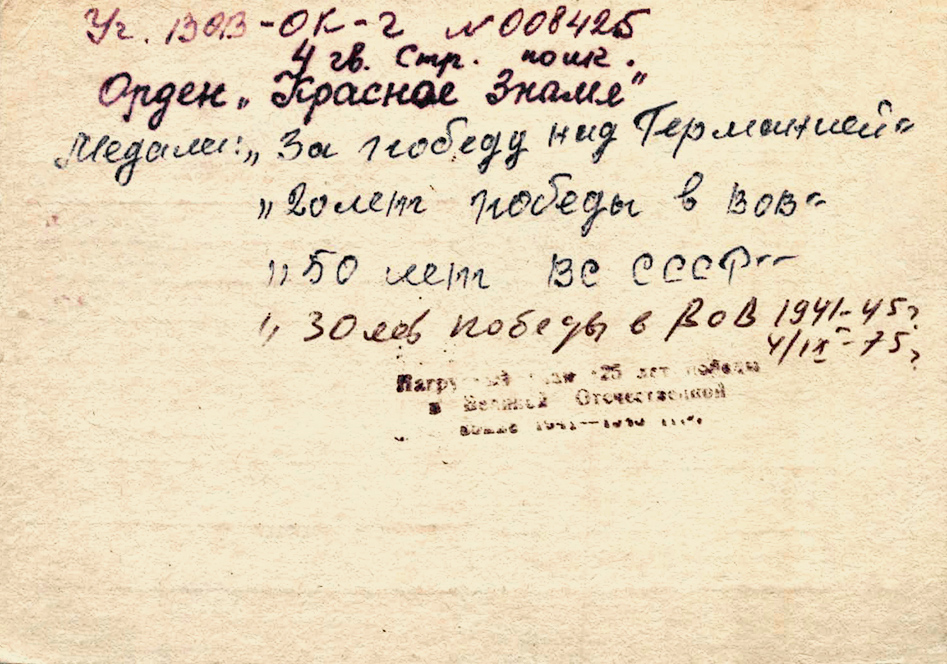 Уч. ВОВ-ОК-2 №008425
4 гв. Стр. полк.
Орден „Красное Знамя"
Медали: „За победу над Германией"
„20 лет победы в ВОВ"
„50 лет ВС СССР"
„30 лет победы в ВОВ 1941-45г
4/IX-75г
25 лет победы
в Великой Отечественной
войне 1941—1945 гг.